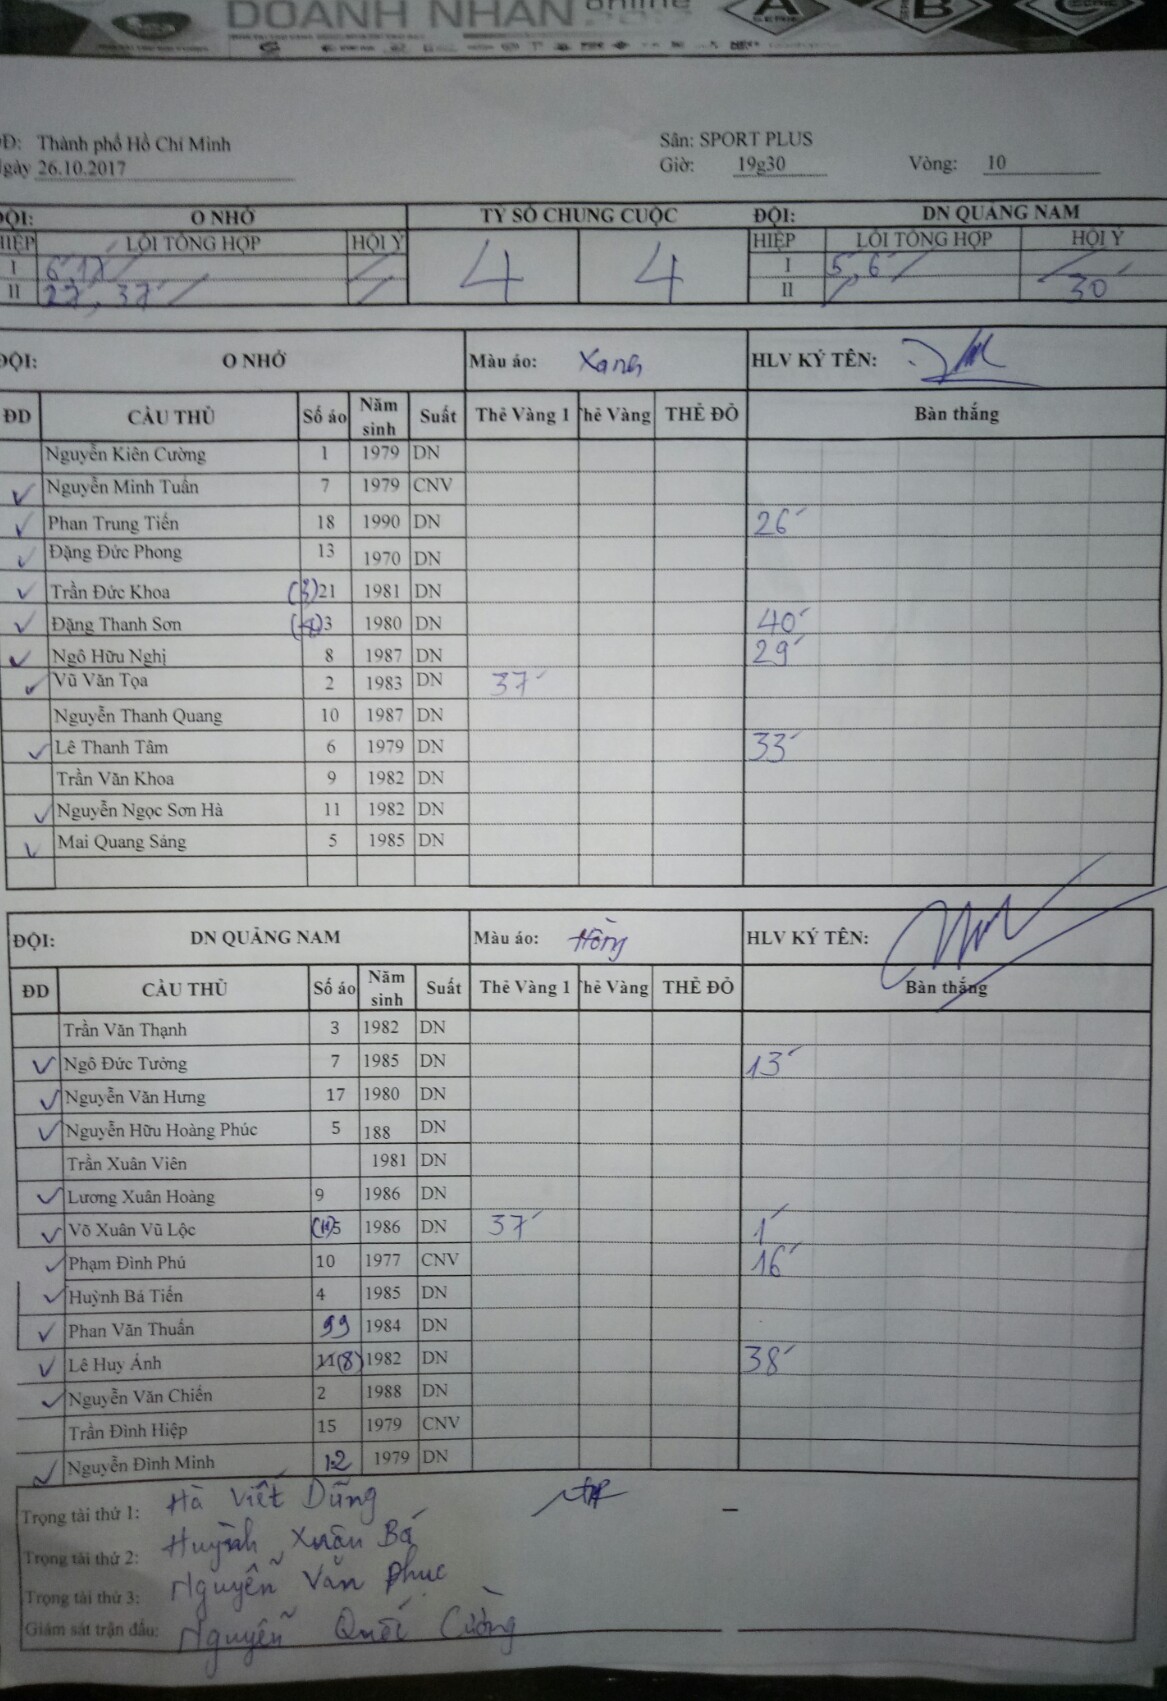 DOANH NHÂN online
A SERIE B SERIE C SERIE
Thành phố Hồ Chí Minh Sân: SPORT PLUS
26.10.2017 Giờ: 19g30 Vòng: 10
ĐỘI: O NHỎ TỶ SỐ CHUNG CUỘC ĐỘI: DN QUẢNG NAM
HIỆP LỖI TỔNG HỢP HỘI Ý 4 4 HIỆP LỖI TỔNG HỢP HỘI Ý
I 6, 17 I 5, 6
II 27, 37 II 30
ĐỘI: O NHỎ Màu áo: Xanh HLV KÝ TÊN:
ĐD CẦU THỦ Số áo Năm sinh Suất Thẻ Vàng 1 Thẻ Vàng THẺ ĐỎ Bàn thắng
Nguyễn Kiên Cường 1 1979 DN
✓ Nguyễn Minh Tuấn 7 1979 CNV
✓ Phan Trung Tiến 18 1990 DN 26'
✓ Đặng Đức Phong 13 1970 DN
✓ Trần Đức Khoa (3)21 1981 DN
✓ Đặng Thanh Sơn 3 1980 DN 40'
✓ Ngô Hữu Nghị 8 1987 DN 29'
✓ Vũ Văn Tọa 2 1983 DN 37'
Nguyễn Thanh Quang 10 1987 DN
✓ Lê Thanh Tâm 6 1979 DN 33'
Trần Văn Khoa 9 1982 DN
✓ Nguyễn Ngọc Sơn Hà 11 1982 DN
✓ Mai Quang Sáng 5 1985 DN
ĐỘI: DN QUẢNG NAM Màu áo: Hồng HLV KÝ TÊN:
ĐD CẦU THỦ Số áo Năm sinh Suất Thẻ Vàng 1 Thẻ Vàng THẺ ĐỎ Bàn thắng
Trần Văn Thạnh 3 1982 DN
✓ Ngô Đức Tường 7 1985 DN 13'
✓ Nguyễn Văn Hưng 17 1980 DN
✓ Nguyễn Hữu Hoàng Phúc 5 188 DN
Trần Xuân Viên 1981 DN
✓ Lương Xuân Hoàng 9 1986 DN
✓ Võ Xuân Vũ Lộc (11)5 1986 DN 37' 1'
✓ Phạm Đình Phú 10 1977 CNV 16'
✓ Huỳnh Bá Tiến 4 1985 DN
✓ Phan Văn Thuấn 99 1984 DN
✓ Lê Huy Ánh 11(8) 1982 DN 38'
✓ Nguyễn Văn Chiến 2 1988 DN
Trần Đình Hiệp 15 1979 CNV
✓ Nguyễn Đình Minh 12 1979 DN
Trọng tài thứ 1: Hà Viết Dũng
Trọng tài thứ 2: Huỳnh Xuân Bá
Trọng tài thứ 3: Nguyễn Văn Phuc
Giám sát trận đấu: Nguyễn Quốc Cường